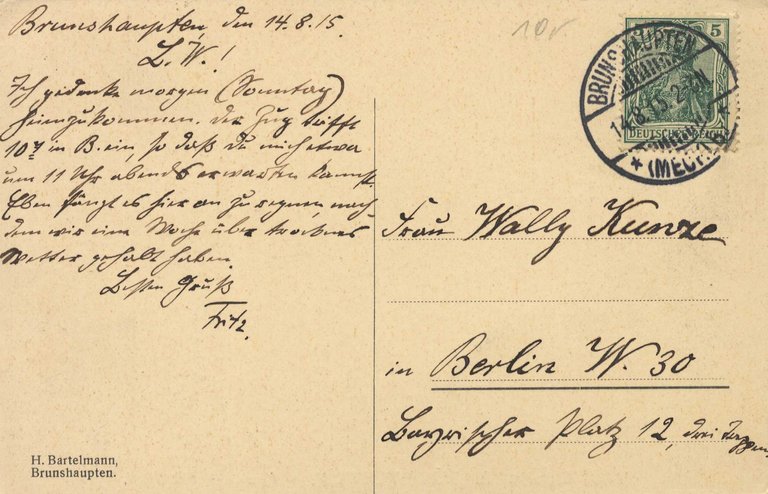 Brunshaupten, den 14.8.15.
L. W.!
Ich gedenke morgen (Sonntag)
heimzukommen. Der Zug trifft
10 in B. ein, so daß du mich etwa
um 11 Uhr abends erwarten kannst.
Eben fängt es hier an zu regnen, nach
dem wir eine Woche über trockenes
Wetter gehabt haben.
Besten Gruß
Fritz.
H. Bartelmann,
Brunshaupten.
BRUNSHAUPTEN
14.8.15
(MECKLB)
5
DEUTSCHES REICH
Frau Wally Kunze
in Berlin W. 30
Bayrischer Platz 12, drei Treppen.